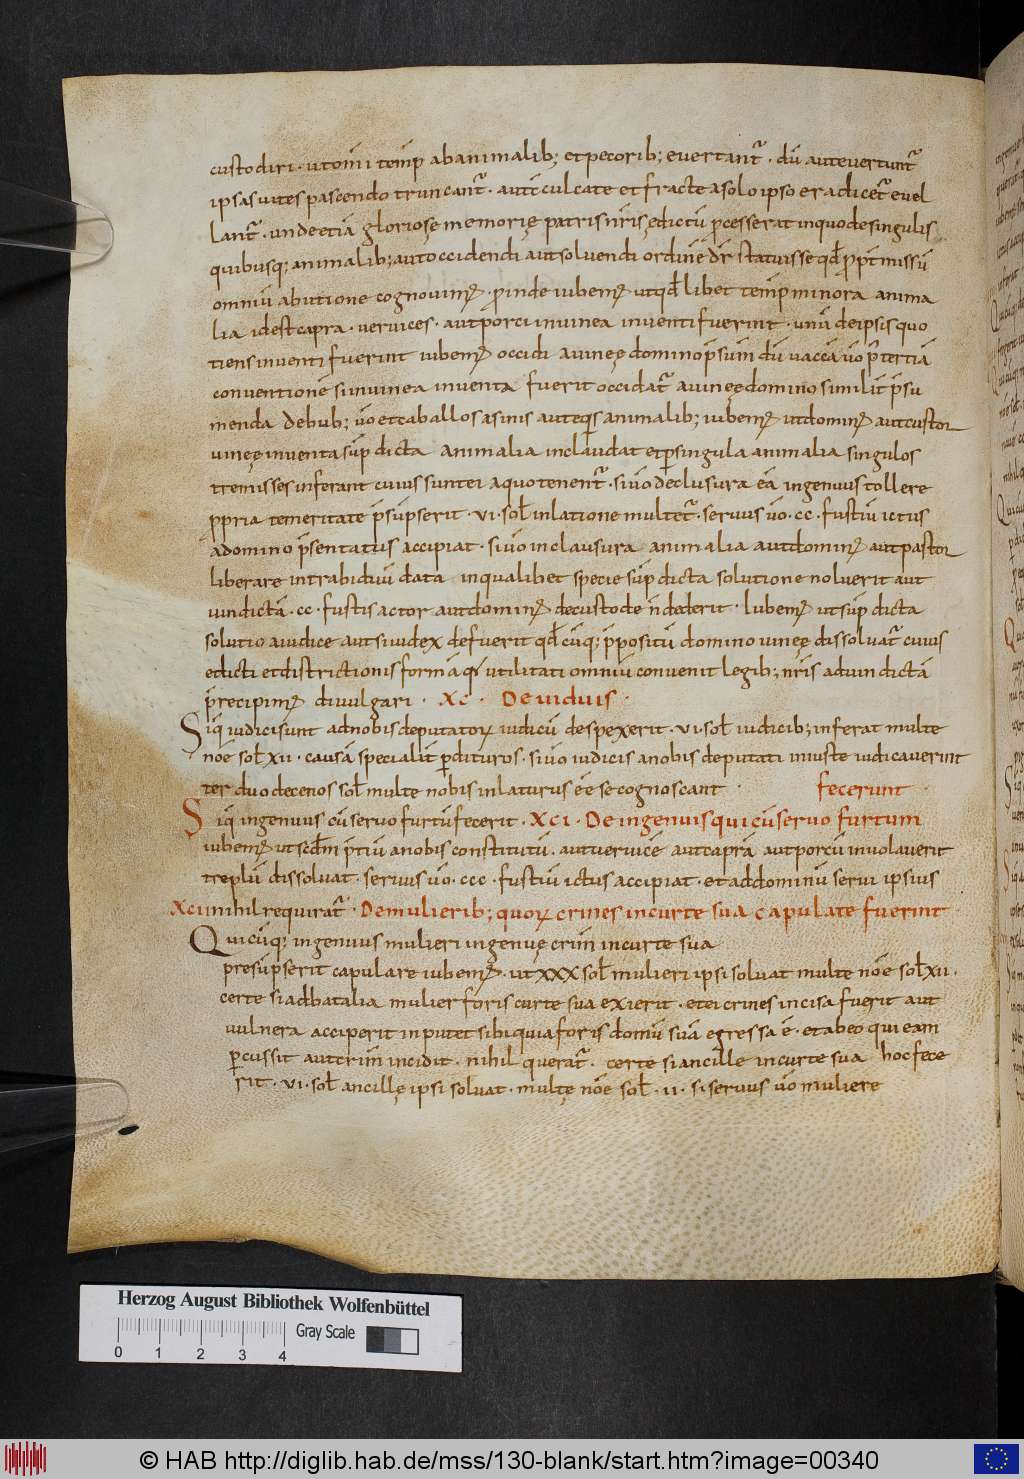 custodiri · utomi temp̄ abanimalib; etpecorib; evertant̄ · dū autevertunt̄
ipsasvites pascendo truncant̄ · aut̄ culcate etfracte asolo ipso eradicet̄ evel
lant̄ · undeetiā gloriosę memorię patrisnr̄is edictū p̄cesserat inquodesingulis
quibusq; animalib; autoccidendi autsolvendi ordinē dr̄ statuisse qđ p̄pt̄ missū
omniū abutione cognovim; · p̄inde iubem; utqđlibet temp̄ minora anima
lia idestcapra · vervices · autporci invinea inventifuerint · unū deipsisquo
tiensinventi fuerint iubem; occidi avineę dominop̄sum̄ dū vaccā v̄o p̄ tertiā
conventionē sivinvinea inventa fuerit occidat̄ avineędomino similit̄ p̄su
menda debub; v̄o etcaballos asinis auteq̄s animalib; iubem; utdomin; autcustor
vineę inventa sup̄ dicta animalia includat etp̄singula animalia singulos
tremisses inferant cuius suntei aquotenent̄ · siv̄o declusura eā ingenuus tollere
p̄pria temeritate p̄sūpserit · vi · soł inlatione multet̄ · servus v̄o · cc · fustiū ictus
adomino p̄sentatus accipiat · siv̄o inclausura animalia autdomin; autpastor
liberare intrabiduū data inqualibet specie sup̄dicta solutione noluerit aut
vindictā · cc · fustis actor autdomin; decustode n̄dederit · Iubem; utsup̄ dicta
solutio aiudice autsiiudex defuerit qđ cūq; p̄positū domino vineę dissolvat̄ cuius
edicti etdistrictionis formā q̄ utilitati omniū convenit legib; nr̄is adiundictā
p̄recipim; divulgari · XC · Deviduis ·
Siq̄ iudicisunt adnobisdeputator; iudiciū despexerit · vi · soł iudicib; inferat multe
noē soł xii · causā specialit̄ p̄dituros · siv̄o iudicis anobis deputati iniuste iudicaverint
ter duodecenos soł multe nobis inlaturus eē se cognoscant · fecerunt ·
Siq̄ ingenuus cū servo furtū fecerit · XCI · De ingenuisquicūservo furtum
iubem; utscđm p̄tiū anobis constitutū · autvervicē autcaprā autporcū involaverit
treplū dissolvat · servus v̄o · ccc · fustiū ictus accipiat · et addominū servi ipsius
XCII nihil requirat̄ · Demulierib; quor; crines incurte sua capulate fuerint
Quicūq; ingenuus mulieri ingenuę crim̄ incurte sua
presūpserit capulare iubem; · ut XXX soł mulieri ipsi solvat multe noē soł xii ·
certe siadbatalia mulier foris curte sua exierit · etei crines incisa fuerit aut
vulnera acciperit inputet sibi quia foris domū suā egressa ē · etabeo qui eam
p̄cussit autcrim̄ incidit · nihil querat̄ · certe siancille incurte sua hocfece
rit · vi · soł ancillę ipsi solvat · multę noē soł · ii · siservus v̄o muliere
Herzog August Bibliothek Wolfenbüttel
Gray Scale
0 1 2 3 4
© HAB http://diglib.hab.de/mss/130-blank/start.htm?image=00340